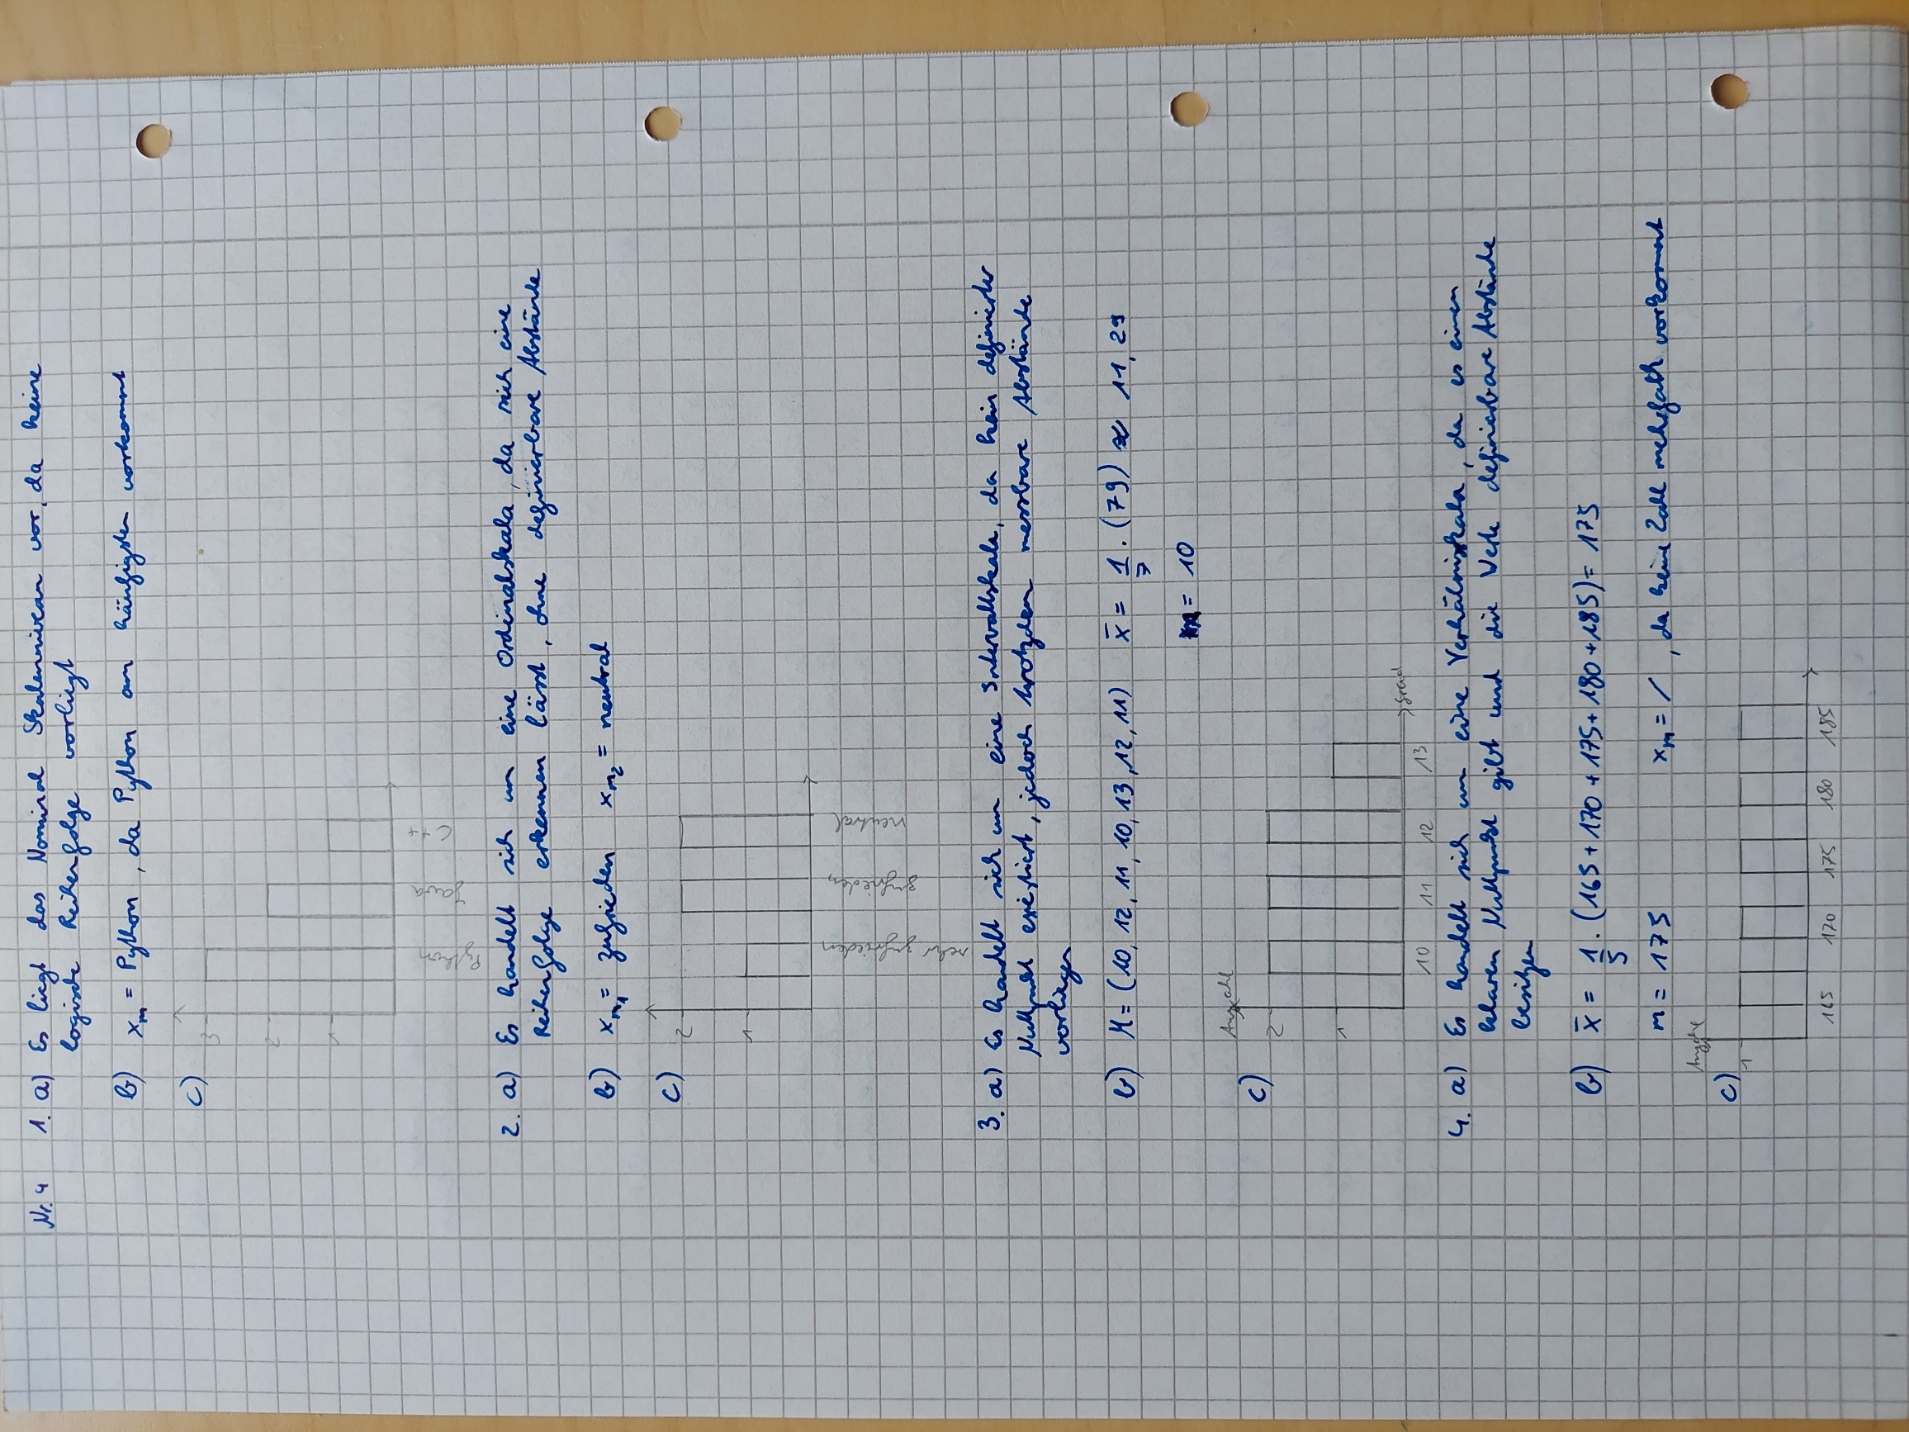 Nr. 4 1. a) Es liegt das Nominal Skalenniveau vor, da keine
logische Reihenfolge vorliegt
b) xm = Python, da Python am häufigsten vorkommt
c)
3
2
1
Python Java C++
2. a) Es handelt sich um eine Ordinalskala, da sich eine
Reihenfolge erkennen lässt, ohne definierbare Abstände
b) xm1 = zufrieden xm2 = neutral
c)
2
1
sehr zufrieden zufrieden neutral
3. a) Es handelt sich um eine Intervallskala, da kein definierter
Nullpunkt existiert, jedoch trotzdem messbare Abstände
vorliegen
b) M = (10, 12, 11, 10, 13, 12, 11) x̄ = 1/7 · (79) ≈ 11,29
m = 10
Anzahl
c)
2
1
Grad
10 11 12 13
4. a) Es handelt sich um eine Verhälnisskala, da es einen
klaren Nullpunkt gibt und die Werte definierbare Abstände
besitzen
b) x̄ = 1/5 · (165 + 170 + 175 + 180 + 185) = 175
m = 175 xm = / , da keine Zahl mehrfach vorkommt
Anzahl
c)
1
165 170 175 180 185